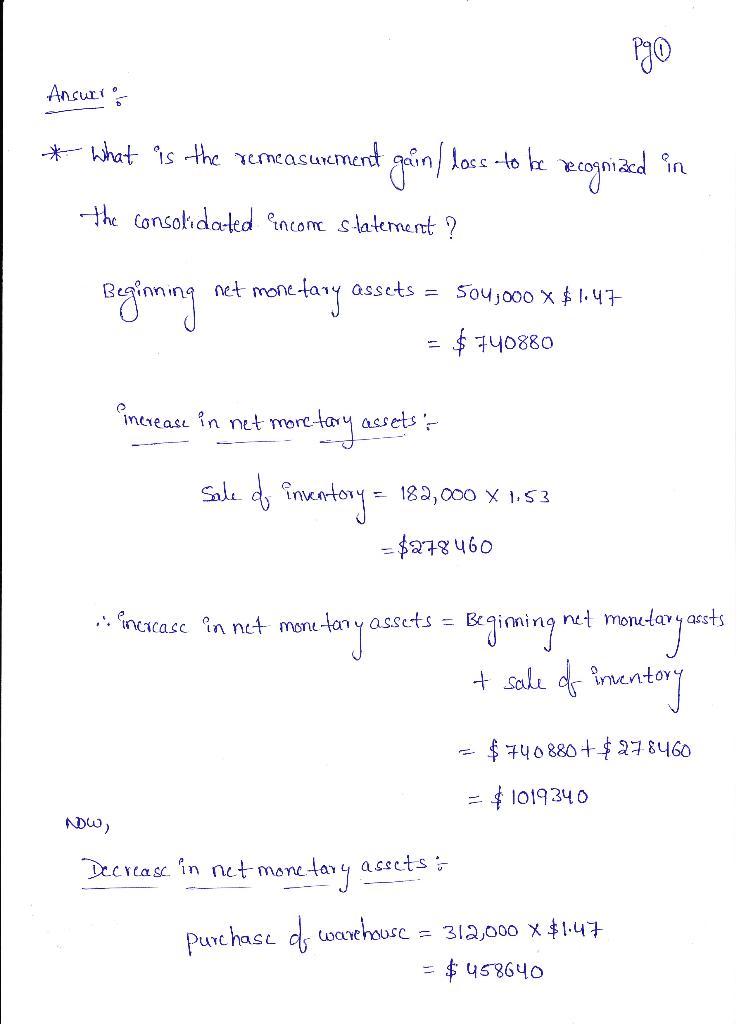 Pg ①
Answer :-
* What is the remeasurement gain/ loss to be recognized in
the consolidated income statement ?
Beginning net monetary assets = 504,000 x $ 1.47
= $ 740880
increase in net monetary assets :-
Sale of inventory = 182,000 x 1.53
= $278460
∴ increase in net monetary assets = Beginning net monetary assts
+ sale of inventory
= $ 740880 + $ 278460
= $ 1019340
NOW,
Decrease in net monetary assets :-
purchase of warehouse = 312,000 x $1.47
= $ 458640